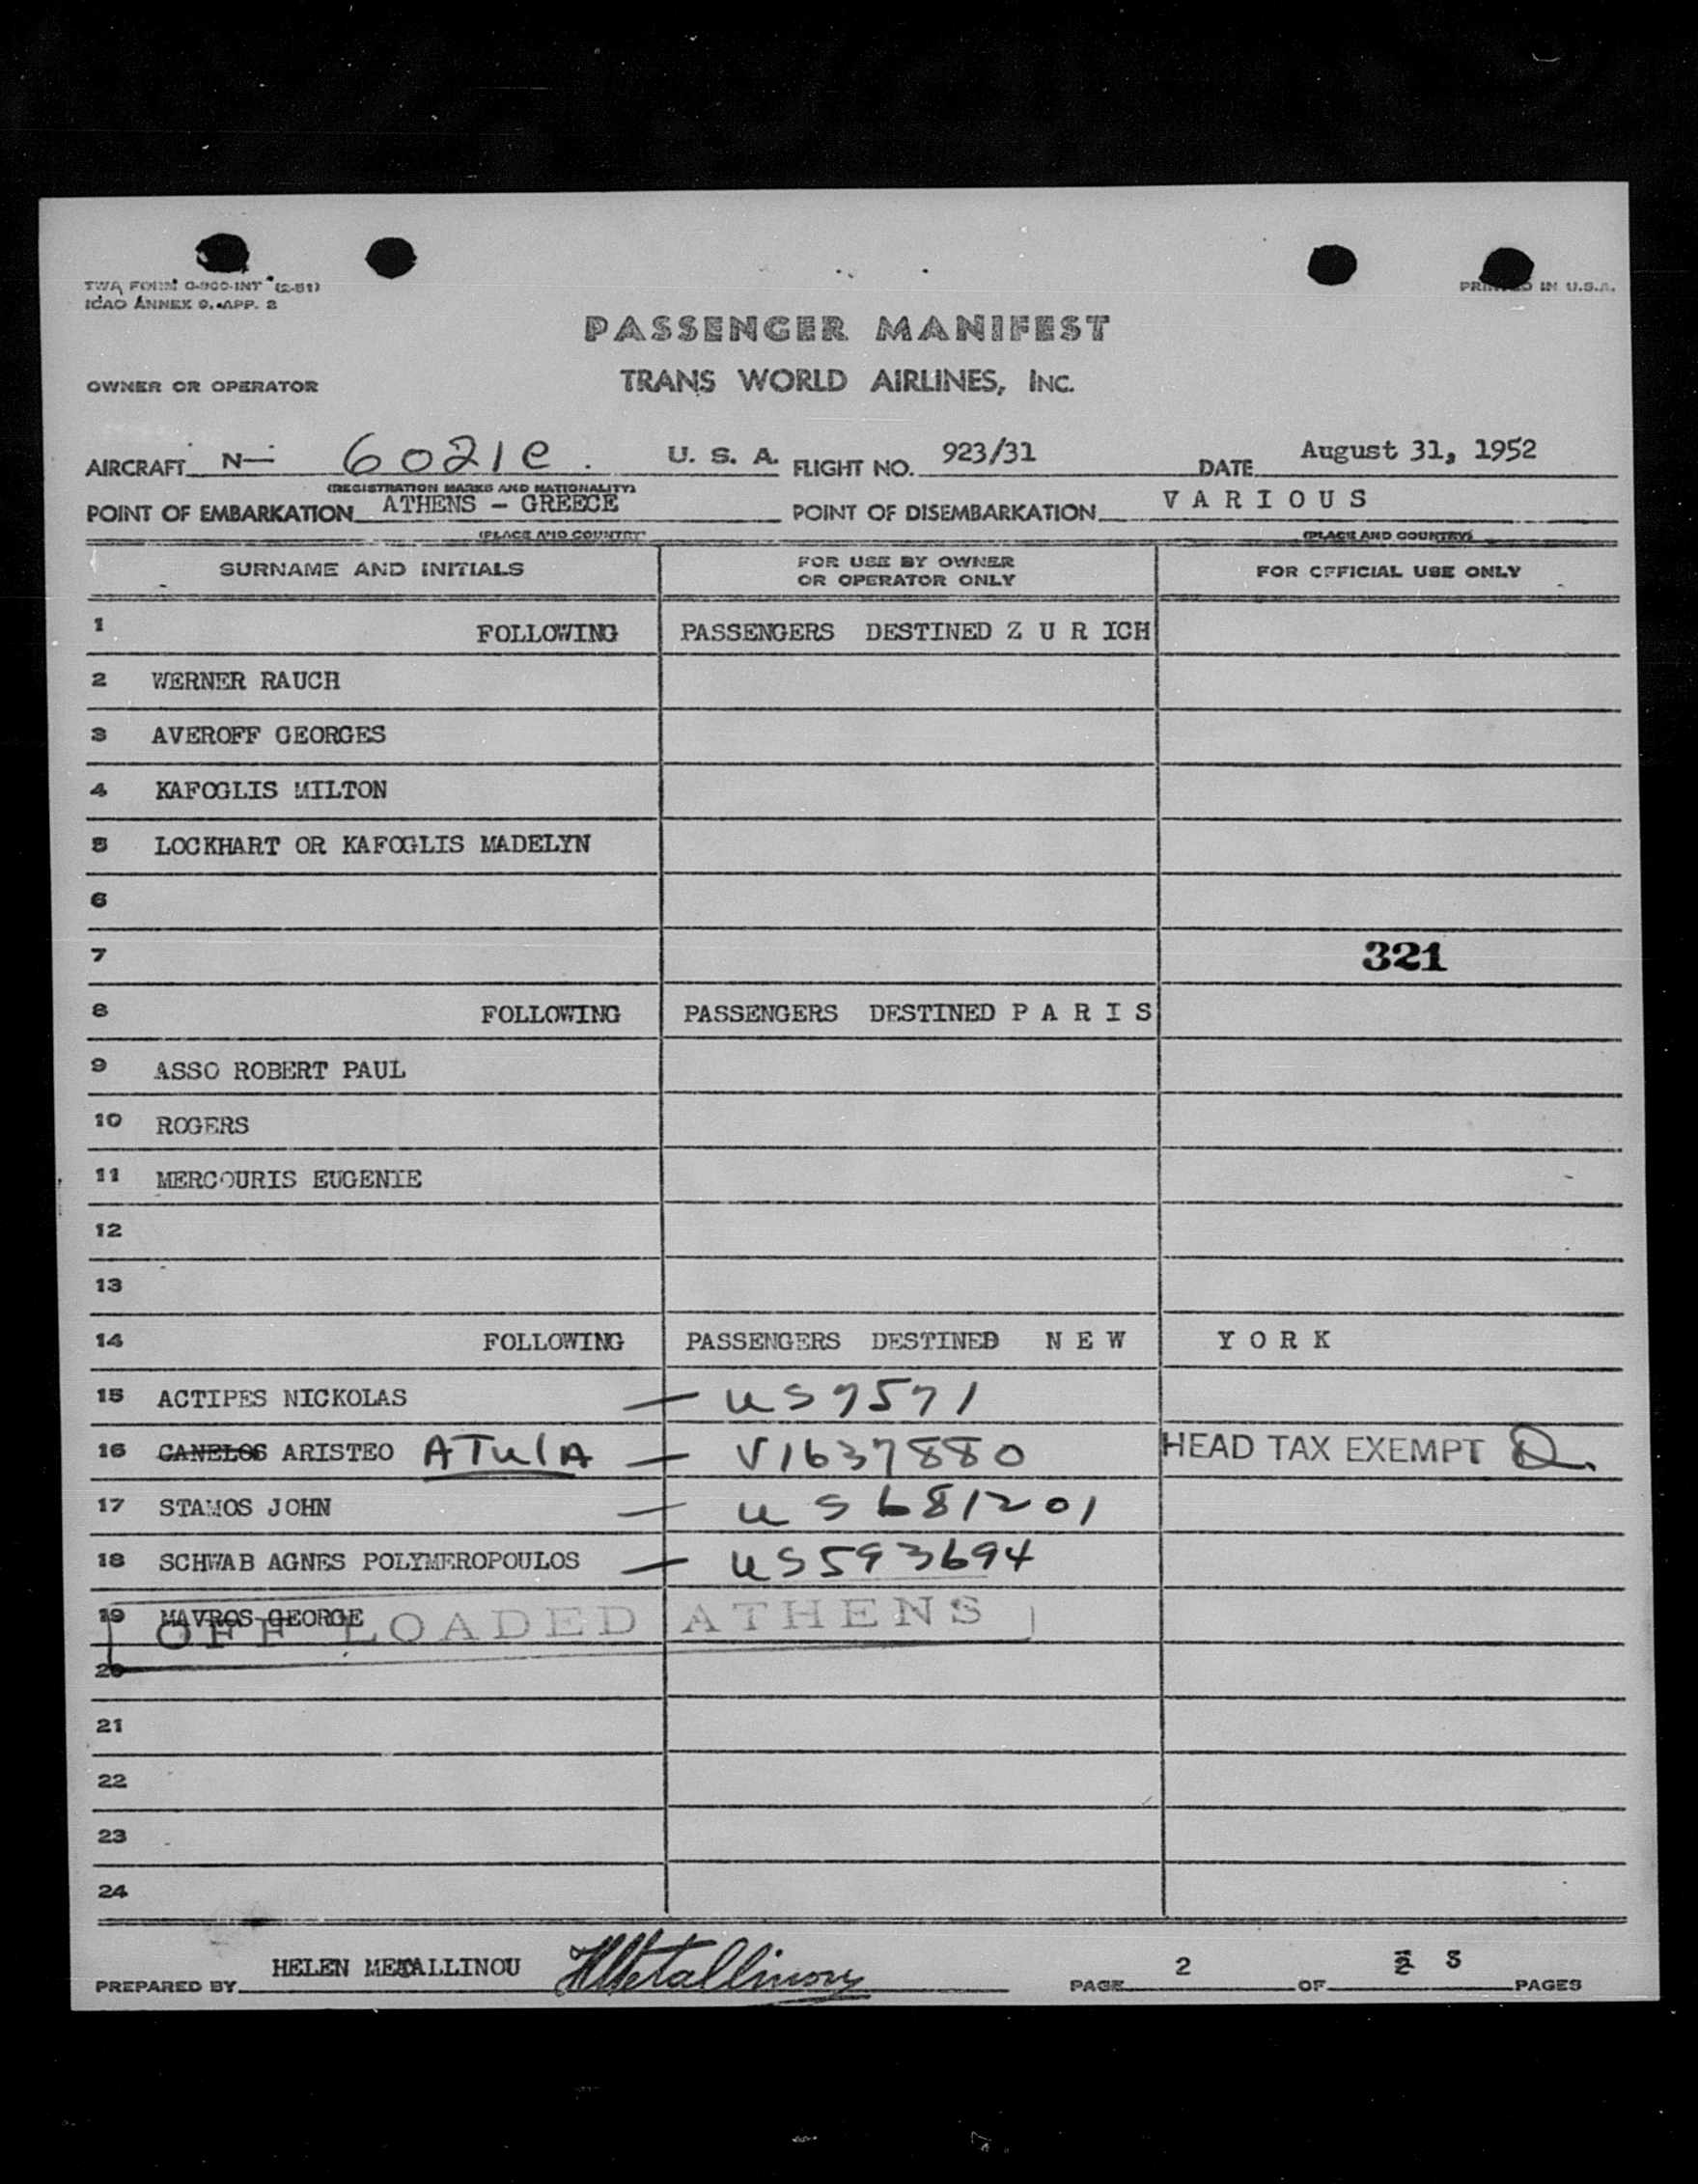 TWA FORM O-900-INT (2-51)
ICAO ANNEX 9, APP. 2
PRINTED IN U.S.A.
PASSENGER MANIFEST
OWNER OR OPERATOR TRANS WORLD AIRLINES, INC.
AIRCRAFT N— 6021C. U. S. A. FLIGHT NO. 923/31 DATE August 31, 1952
(REGISTRATION MARKS AND NATIONALITY)
POINT OF EMBARKATION ATHENS - GREECE POINT OF DISEMBARKATION V A R I O U S
(PLACE AND COUNTRY) (PLACE AND COUNTRY)
SURNAME AND INITIALS FOR USE BY OWNER OR OPERATOR ONLY FOR OFFICIAL USE ONLY
1 FOLLOWING PASSENGERS DESTINED Z U R ICH
2 WERNER RAUCH
3 AVEROFF GEORGES
4 KAFOGLIS MILTON
5 LOCKHART OR KAFOGLIS MADELYN
6
7 321
8 FOLLOWING PASSENGERS DESTINED P A R I S
9 ASSO ROBERT PAUL
10 ROGERS
11 MERCOURIS EUGENIE
12
13
14 FOLLOWING PASSENGERS DESTINED N E W Y O R K
15 ACTIPES NICKOLAS — US7571
16 CANELOS ARISTEO ATulA — V1637880 HEAD TAX EXEMPT
17 STAMOS JOHN — US681201
18 SCHWAB AGNES POLYMEROPOULOS — US593694
19 MAVROS GEORGE
OFF LOADED ATHENS
20
21
22
23
24
PREPARED BY HELEN METALLINOU HMetallinou PAGE 2 OF 2 3 PAGES